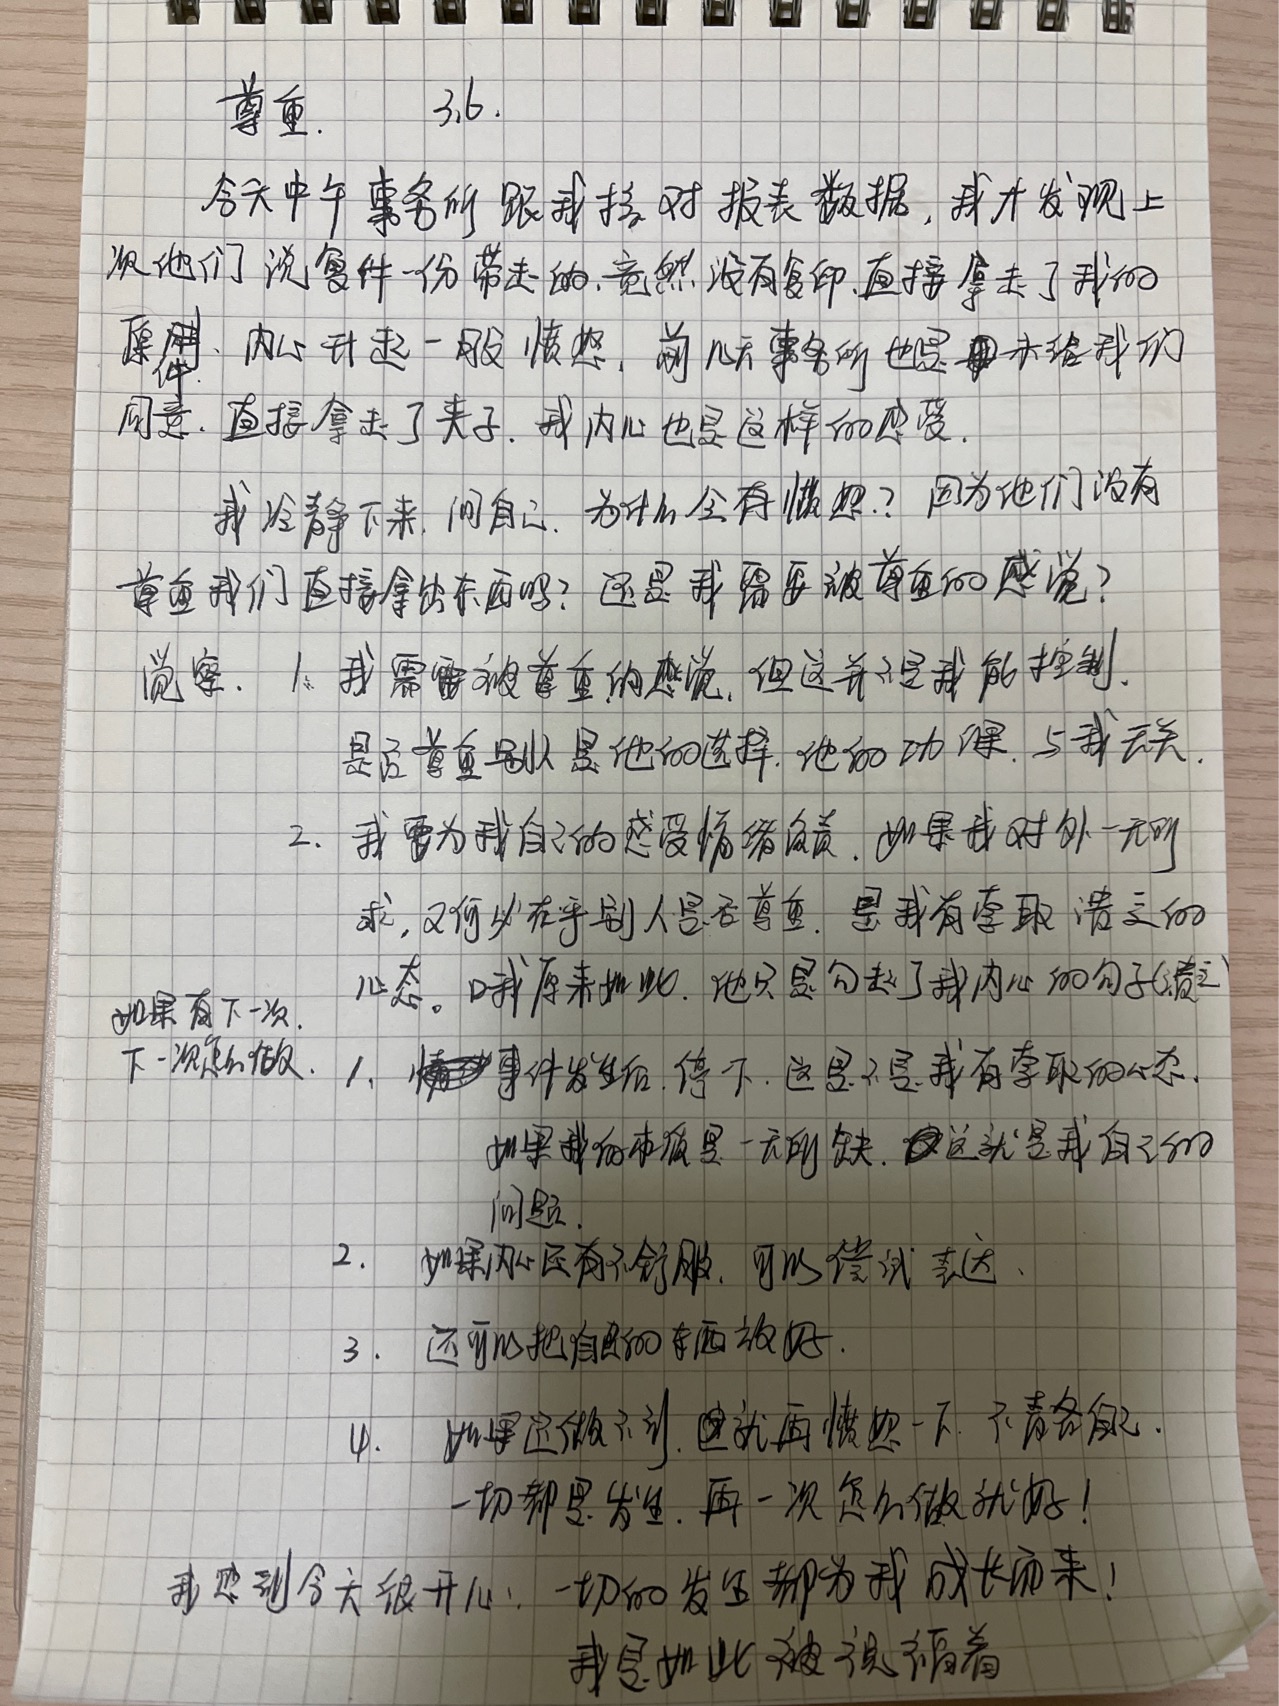 尊重. 3.6.
今天中午事务所跟我核对报表数据,我才发现上
次他们说复件一份带走的、竟然没有复印、直接拿去了我的
原件、内心升起一股愤怒,前几天事务所也是未给我们
同意、直接拿去了夹子.我内心也是这样的感受.
我冷静下来,问自己、为什么会有愤怒?因为他们没有
尊重我们直接拿出东西吗?还是我需要被尊重的感觉?
觉察. 1、我需要被尊重的感觉,但这并不是我能控制.
是否尊重别人是他的选择.他的功课.与我无关.
2. 我要为我自己的感受情绪负责.如果我对外一无所
求,又何必在乎别人是否尊重.是我有索取 的
心态。 我原来如此.他只是勾起了我内心的句子(
如果有下一次.
下一次怎么做. 1、事件发生后.停下.这是不是我有索取的心态.
如果我的本质是一无所缺.这就是我自己的
问题.
2. 如果内心还有不舒服.可以尝试表达.
3. 还可以把自己的东西放好.
4. 如果还做不到.就再愤怒一下.不责备自己.
一切都是发生.再一次怎么做就好!
我感到今天很开心:一切的发生都为我成长而来!
我是如此被祝福着